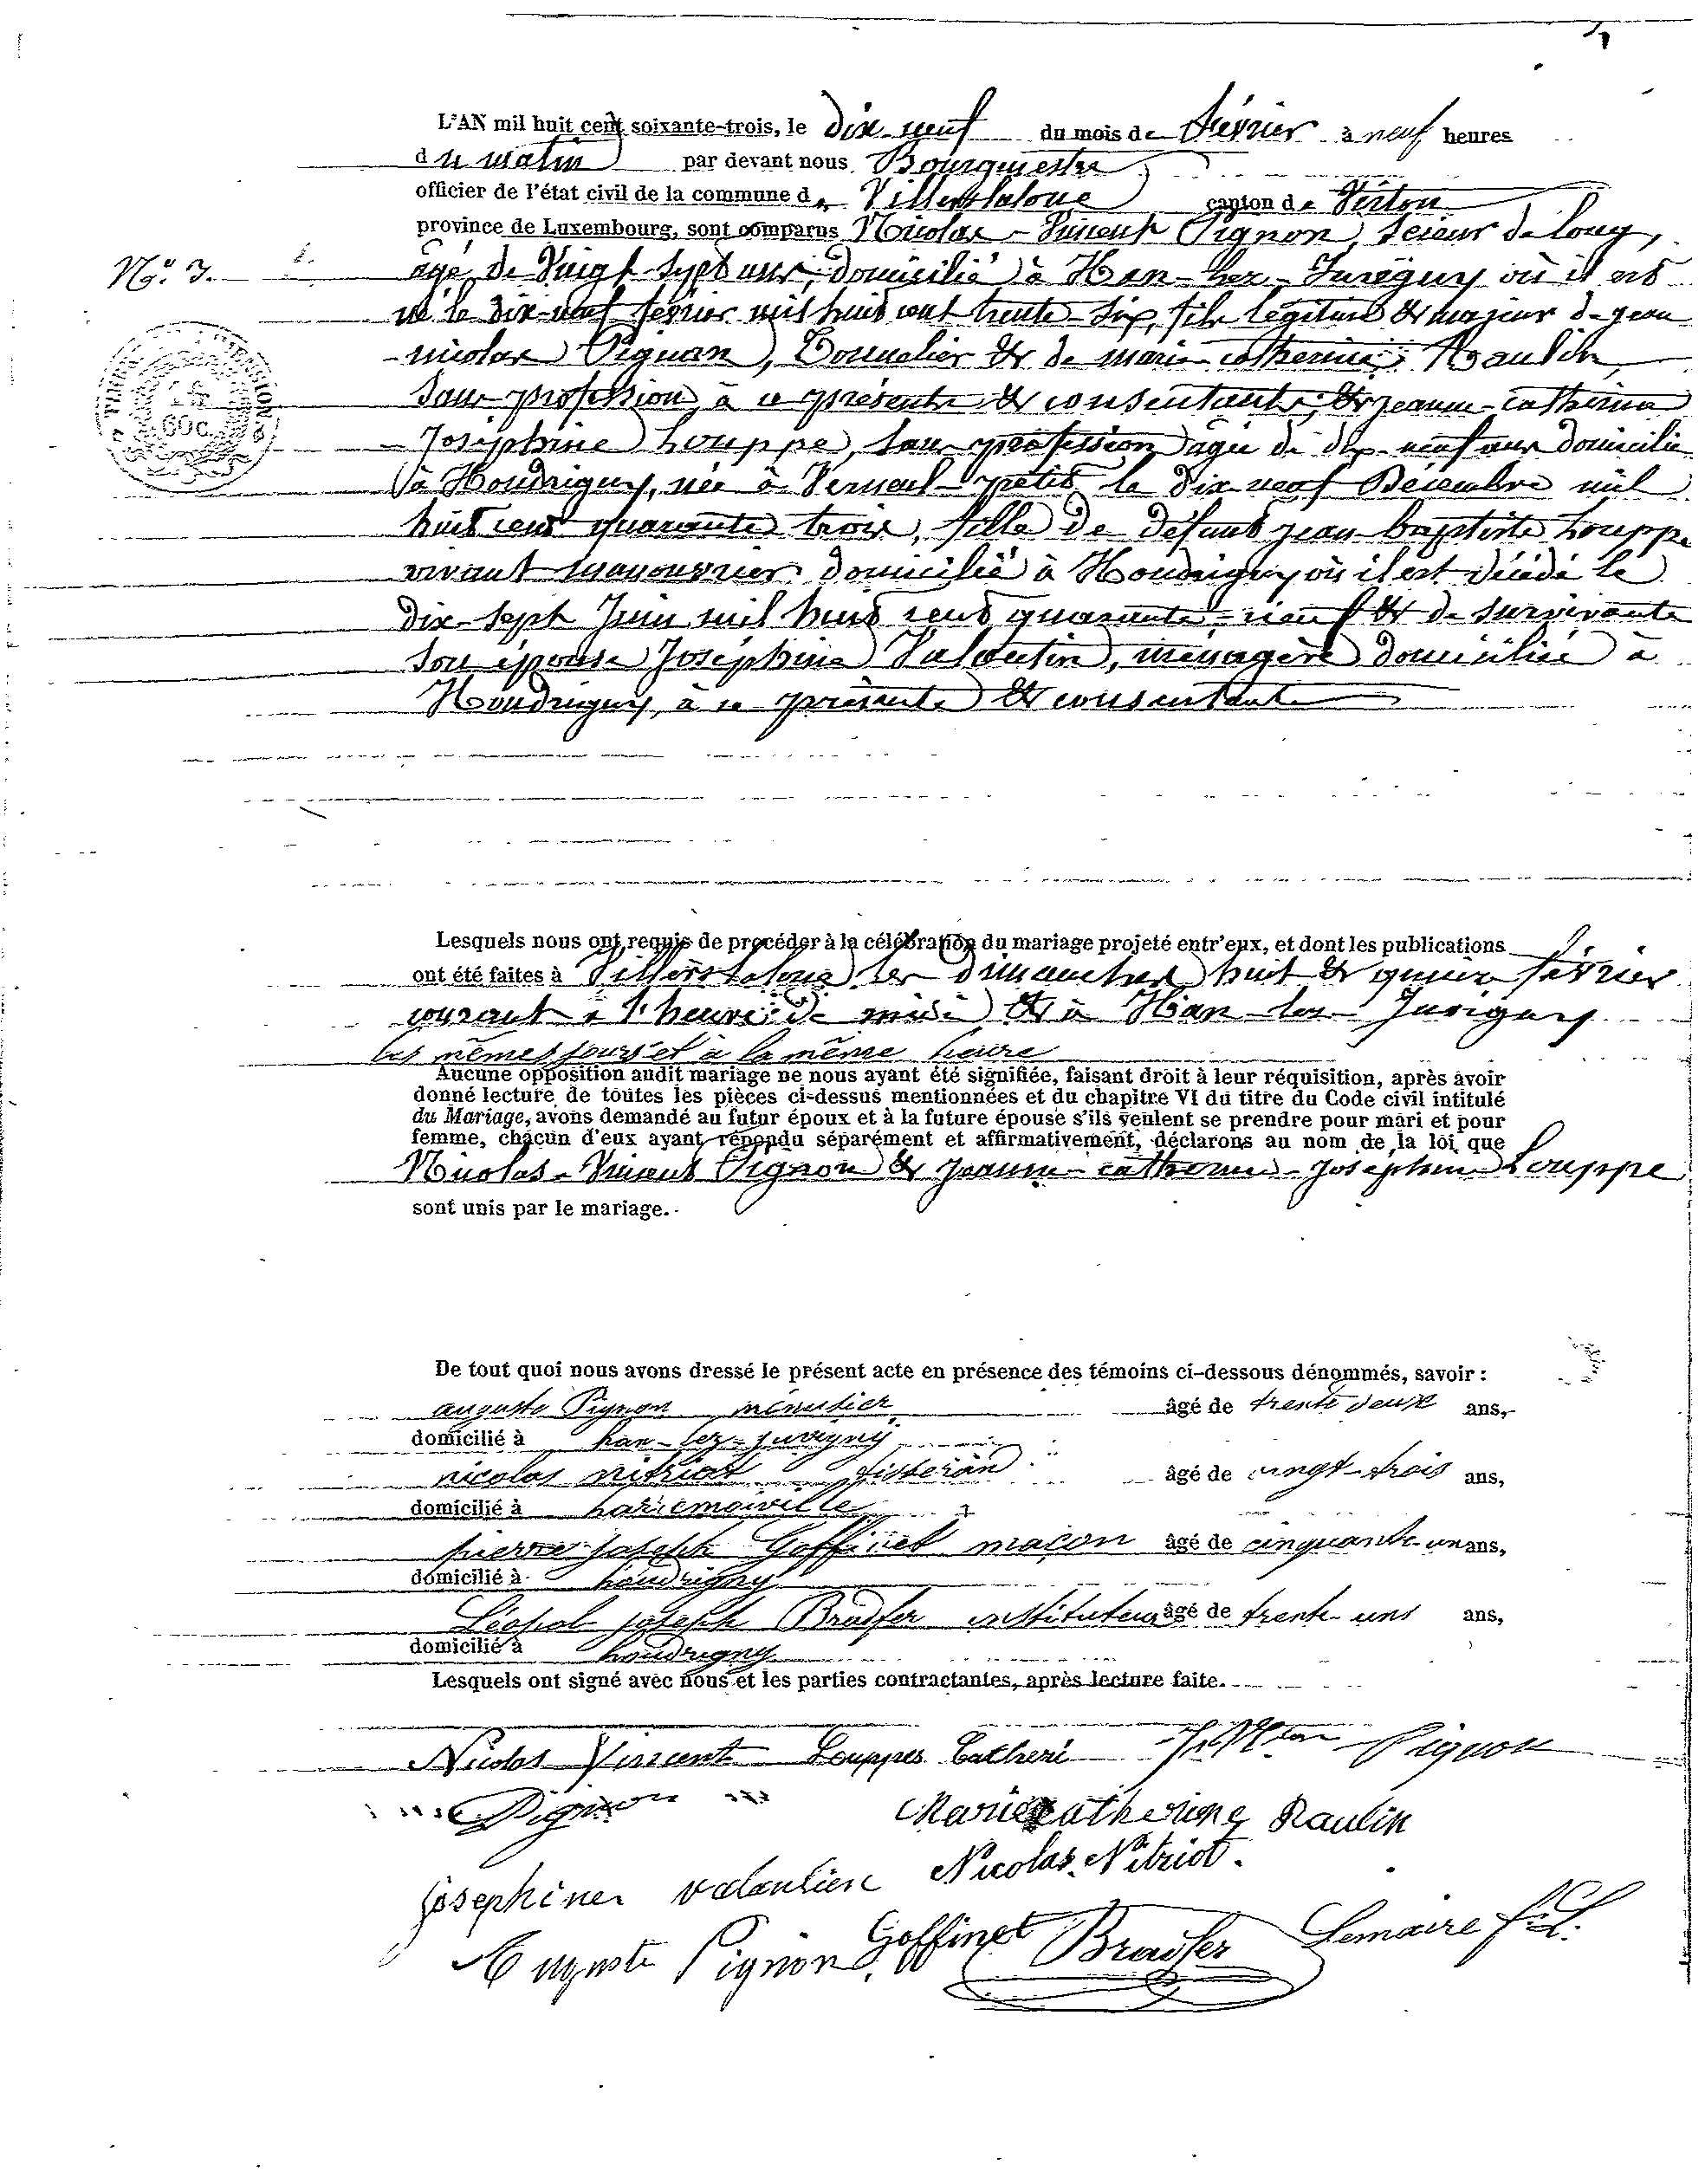 L'AN mil huit cent soixante-trois, le dix-neuf du mois de février à neuf heures
du matin par devant nous Bourgmestre
officier de l'état civil de la commune de Villerslaloue canton de Virton
province de Luxembourg, sont comparus Nicolas-Vincent Pignon, scieur de long,
N°. 3.
âgé de vingt-sept ans, domicilié à Han-lez-Juvigny où il est
né le dix-neuf février mil huit cent trente-six, fils légitime & majeur de jean
nicolas Pignon, Tonnelier & de marie-catherine Raulin,
sans profession à ce présents & consentants; & jeanne-catherine
Joséphine Louppe, sans profession âgée de dix-neuf ans domicilie
à Houdrigny, née à Verneuil-petit le dix-neuf Décembre mil
huit cent quarante trois, fille de défunt jean-baptiste Louppe
vivant manouvrier domicilié à Houdrigny où il est décédé le
dix-sept Juin mil huit cent quarante-neuf & de survivante
son épouse Joséphine Valentin, ménagère domiciliée à
Houdrigny, à ce présente & consentante
TIMBRE
60 c.
Lesquels nous ont requis de procéder à la célébration du mariage projeté entr'eux, et dont les publications
ont été faites à Villerslaloue les dimanches huit & quinze février
courant à l'heure de midi & à Han-les-Juvigny
les mêmes jours et à la même heure
Aucune opposition audit mariage ne nous ayant été signifiée, faisant droit à leur réquisition, après avoir
donné lecture de toutes les pièces ci-dessus mentionnées et du chapitre VI du titre du Code civil intitulé
du Mariage, avons demandé au futur époux et à la future épouse s'ils veulent se prendre pour mari et pour
femme, chacun d'eux ayant répondu séparément et affirmativement, déclarons au nom de la loi que
Nicolas-Vincent Pignon & Jeanne-catherine-Joséphine Louppe
sont unis par le mariage.
De tout quoi nous avons dressé le présent acte en présence des témoins ci-dessous dénommés, savoir :
auguste Pignon menusier âgé de trente deux ans,
domicilié à han-lez-juvigny
nicolas nitriot tisseran âgé de vingt-trois ans,
domicilié à
pierre joseph Goffinet maçon âgé de cinquante-un ans,
domicilié à houdrigny
Léopol joseph Bradfer instituteur âgé de trente-uns ans,
domicilié à houdrigny
Lesquels ont signé avec nous et les parties contractantes, après lecture faite.
Nicolas Vincent Louppes Catheri Pignon
Pignon Marie Catherine Raulin
josephine valentien Nicolas Nitriot.
Auguste Pignon. Goffinet Bradfer Lemaire